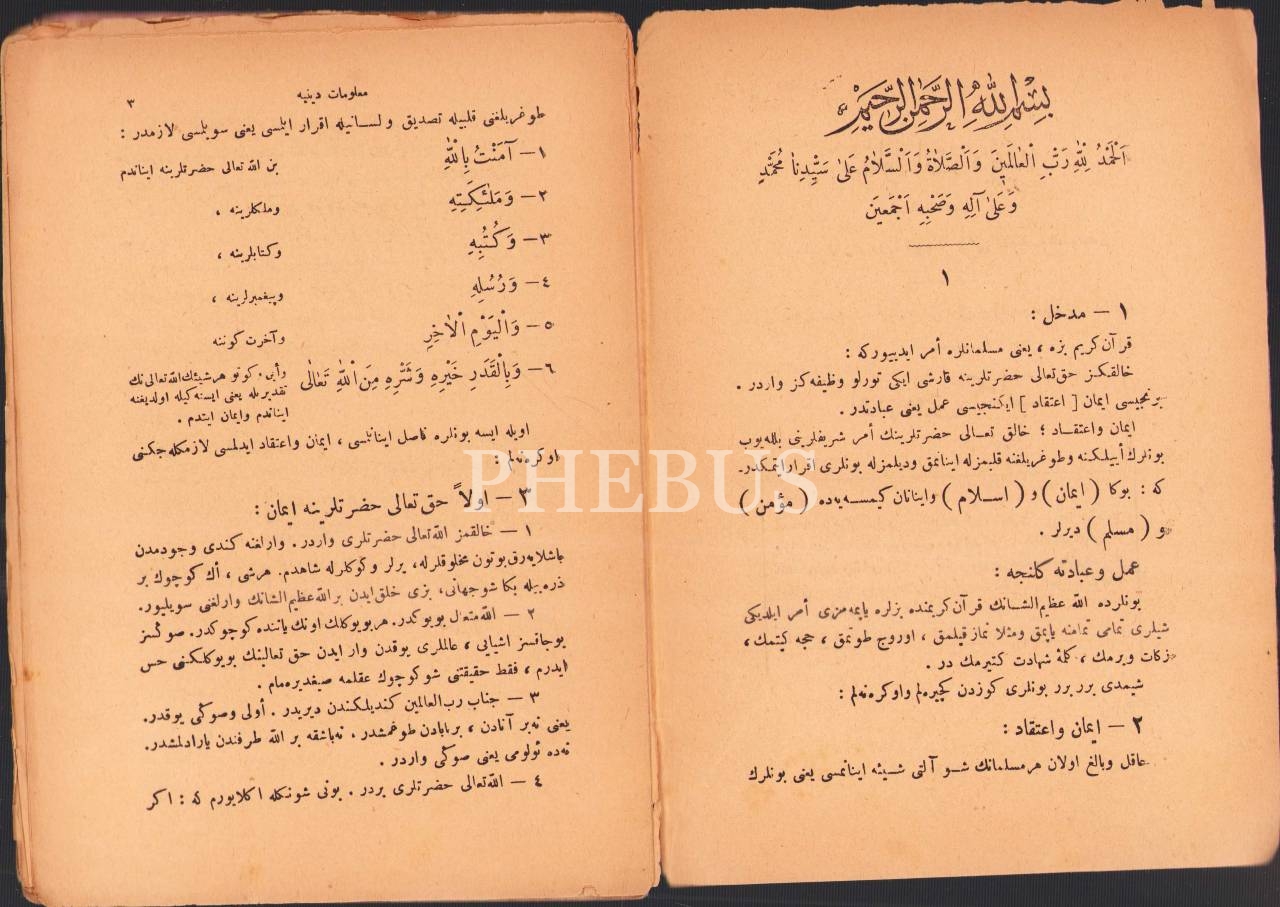 بِسْمِ اللّٰهِ الرَّحْمٰنِ الرَّحِيْمِ
اَلْحَمْدُ لِلّٰهِ رَبِّ الْعٰالَمِينَ وَالصَّلاٰةُ وَالسَّلاٰمُ عَلٰى سَيِّدِنٰا مُحَمَّدٍ
وَعَلٰى آلِهِ وَصَحْبِهِ اَجْمَعِينَ
١
١ — مدخل :
قرآن كريم بزه ، يعنى مسلمانلره أمر ايدييوركه :
خالقكز حق‌تعالى حضرتلرينه قارشى ايكى تورلو وظيفه‌كز واردر .
برنجيسى ايمان [ اعتقاد ] ايكنجيسى عمل يعنى عبادتدر .
ايمان واعتقاد ؛ خالق تعالى حضرتلرينك أمر شريفلرينى بيلله‌يوب
بونلرك أييلكنه وطوغريلغنه قلبمزله اينانمق وديلمزله بونلرى اقرار ايتمكدر.
كه : بوكا ( ايمان ) و ( اسلام ) واينانان كيمسه‌يه‌ده ( مؤمن )
و ( مسلم ) ديرلر .
عمل وعبادته كلنجه :
بونلرده الله عظيم‌الشانك قرآن كريمنده بزلره ياپمه‌مزى أمر ايلديكى
شيلرى تمامى تمامنه ياپمق ومثلا نماز قيلمق ، اوروج طوتمق ، حجه كيتمك ،
زكات ويرمك ، كلمهٔ شهادت كتيرمك در .
شيمدى برر برر بونلرى كوزدن كچيره‌لم واوكره‌نه‌لم :
٢ — ايمان واعتقاد :
عاقل وبالغ اولان هرمسلمانك شو آلتى شيئه اينانمسى يعنى بونلرك
معلومات دينيه
٣
طوغريلغنى قلبيله تصديق ولسانيله اقرار ايلمسى يعنى سويلمسى لازمدر :
١— آمَنْتُ بِاللّٰهِ بن الله تعالى حضرتلرينه ايناندم
٢— وَمَلٰئِكَتِهِ وملكلرينه ،
٣— وَكُتُبِهِ وكتابلرينه ،
٤— وَرُسُلِهِ وپيغمبرلرينه ،
٥— وَالْيَوْمِ الْاٰخِرِ وآخرت كوننه
٦— وَبِالْقَدَرِ خَيْرِهِ وَشَرِّهِ مِنَ اللّٰهِ تَعٰالٰى وأيى، كوتو هرشيئك الله‌تعالى‌نك
تقديرله يعنى ايسته‌كيله اولديغنه
ايناندم وايمان ايتدم .
اويله ايسه بونلره ناصل اينانلسى ، ايمان واعتقاد ايدلمسى لازمكله‌جكنى
اوكره‌نه‌لم :
٣ — اولاً حق تعالى حضرتلرينه ايمان :
١ — خالقمز الله‌تعالى حضرتلرى واردر . وارلغنه كندى وجودمدن
باشلايه‌رق بوتون مخلوقلرله، يرلر وكوكلرله شاهدم. هرشى ، أك كوچوك بر
ذره بيله بكا شو جهانى، بزى خلق ايدن بر الله عظيم‌الشانك وارلغنى سويليور.
٢ — الله متعال بويوكدر. هربويوكلك اونك ياننده كوچوكدر. صوكسز
بوجاقسز اشيايى ، عاللرى يوقدن وار ايدن حق تعالينك بويوكلكنى حس
ايدرم ، فقط حقيقتنى شو كوچوك عقلمه صيغديره‌مام .
٣ — جناب رب العالمين كنديلكندن ديريدر . أولى وصوكى يوقدر.
يعنى نه بر آنادن ، بر بابادن طوغمشدر . نه باشقه بر الله طرفندن يارادلمشدر.
نه‌ده ئولومى يعنى صوكى واردر .
٤ — الله‌تعالى حضرتلرى بردر . بونى شونكله اكلايورم كه : اكر
٣
PHEBUS